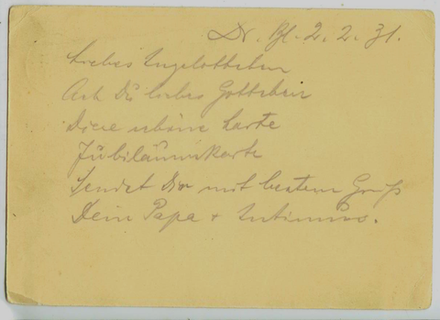 Dr. Bl. 2.2.31.
Liebes Engelottchen
Ach Du liebes Gottchen
Diese schöne Karte
Jubiläumskarte
Sendet Dir mit bestem Gruß
Dein Papa +